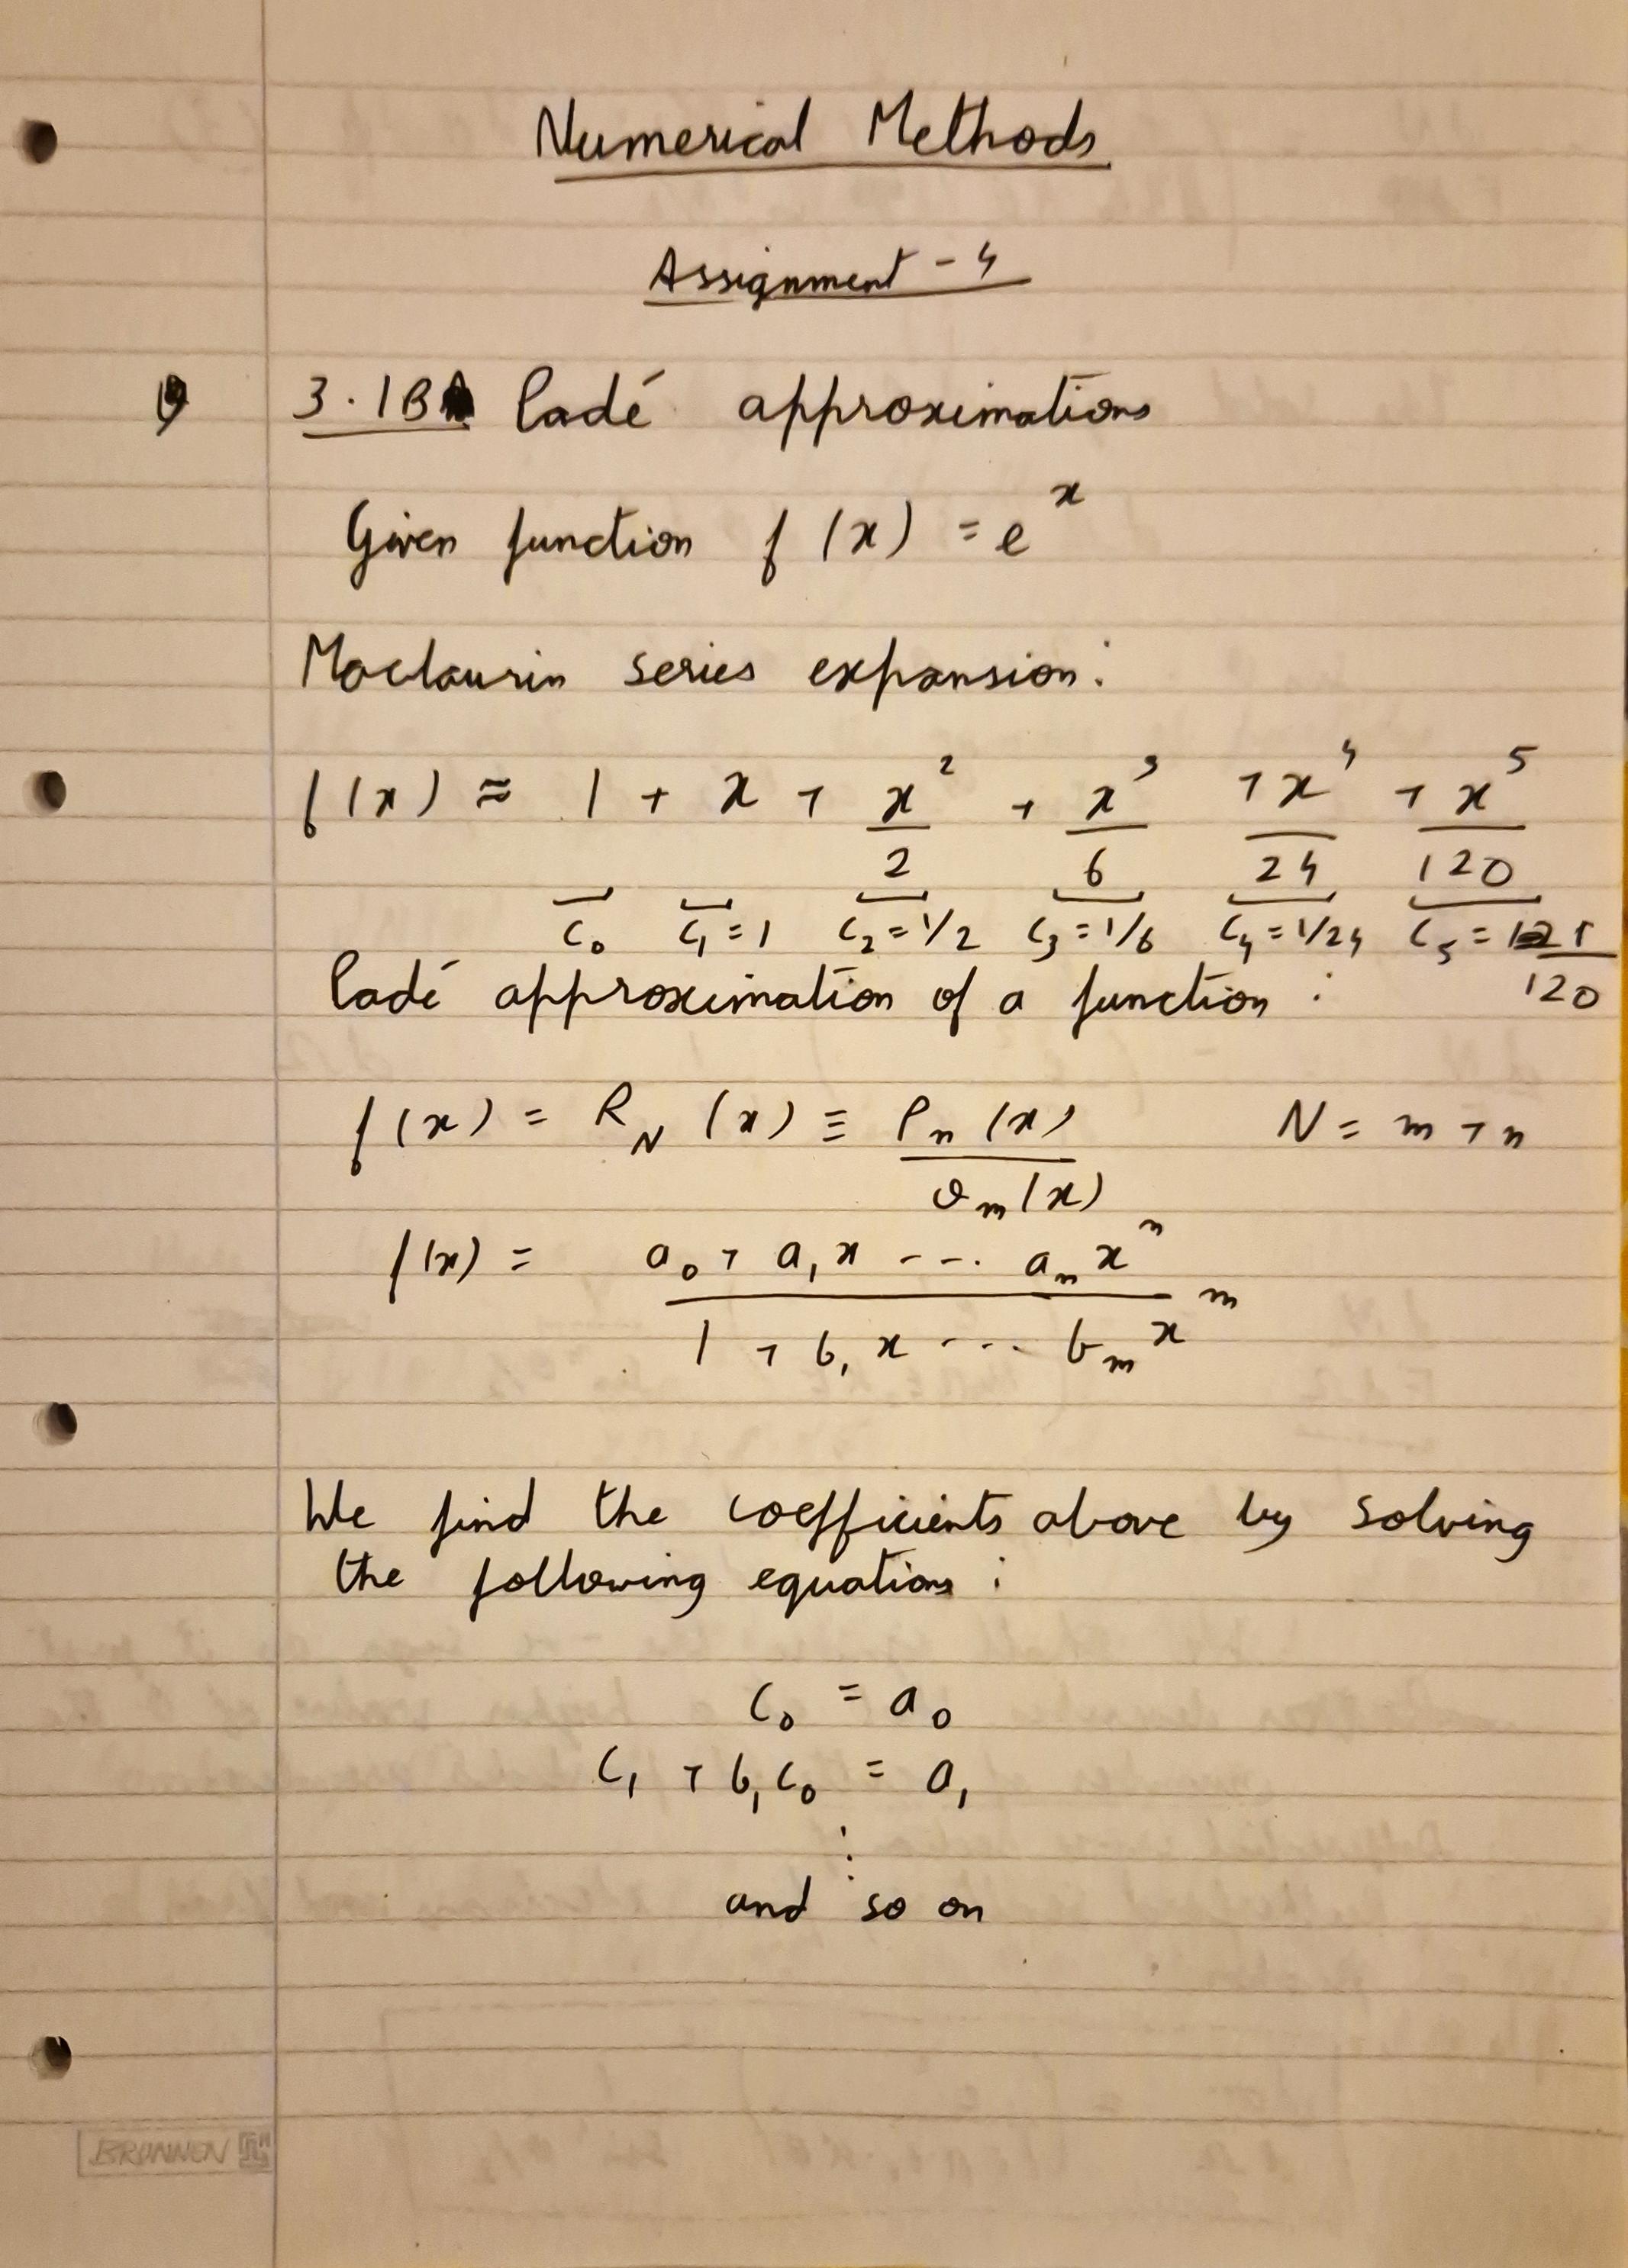 Numerical Methods
Assignment - 4
Q 3.1B Padé approximations
Given function f(x) = e^x
Maclaurin series expansion:
f(x) ≈ 1 + x + x^2/2 + x^3/6 + x^4/24 + x^5/120
c_0 c_1 = 1 c_2 = 1/2 c_3 = 1/6 c_4 = 1/24 c_5 = 1/120
Padé approximation of a function :
f(x) = R_N (x) ≡ P_n (x) / Q_m (x) N = m + n
f(x) = a_0 + a_1 x --- a_n x^n / 1 + b_1 x --- b_m x^m
We find the coefficients above by solving
the following equations :
c_0 = a_0
c_1 + b_1 c_0 = a_1
⋮
and so on
BRUNNEN